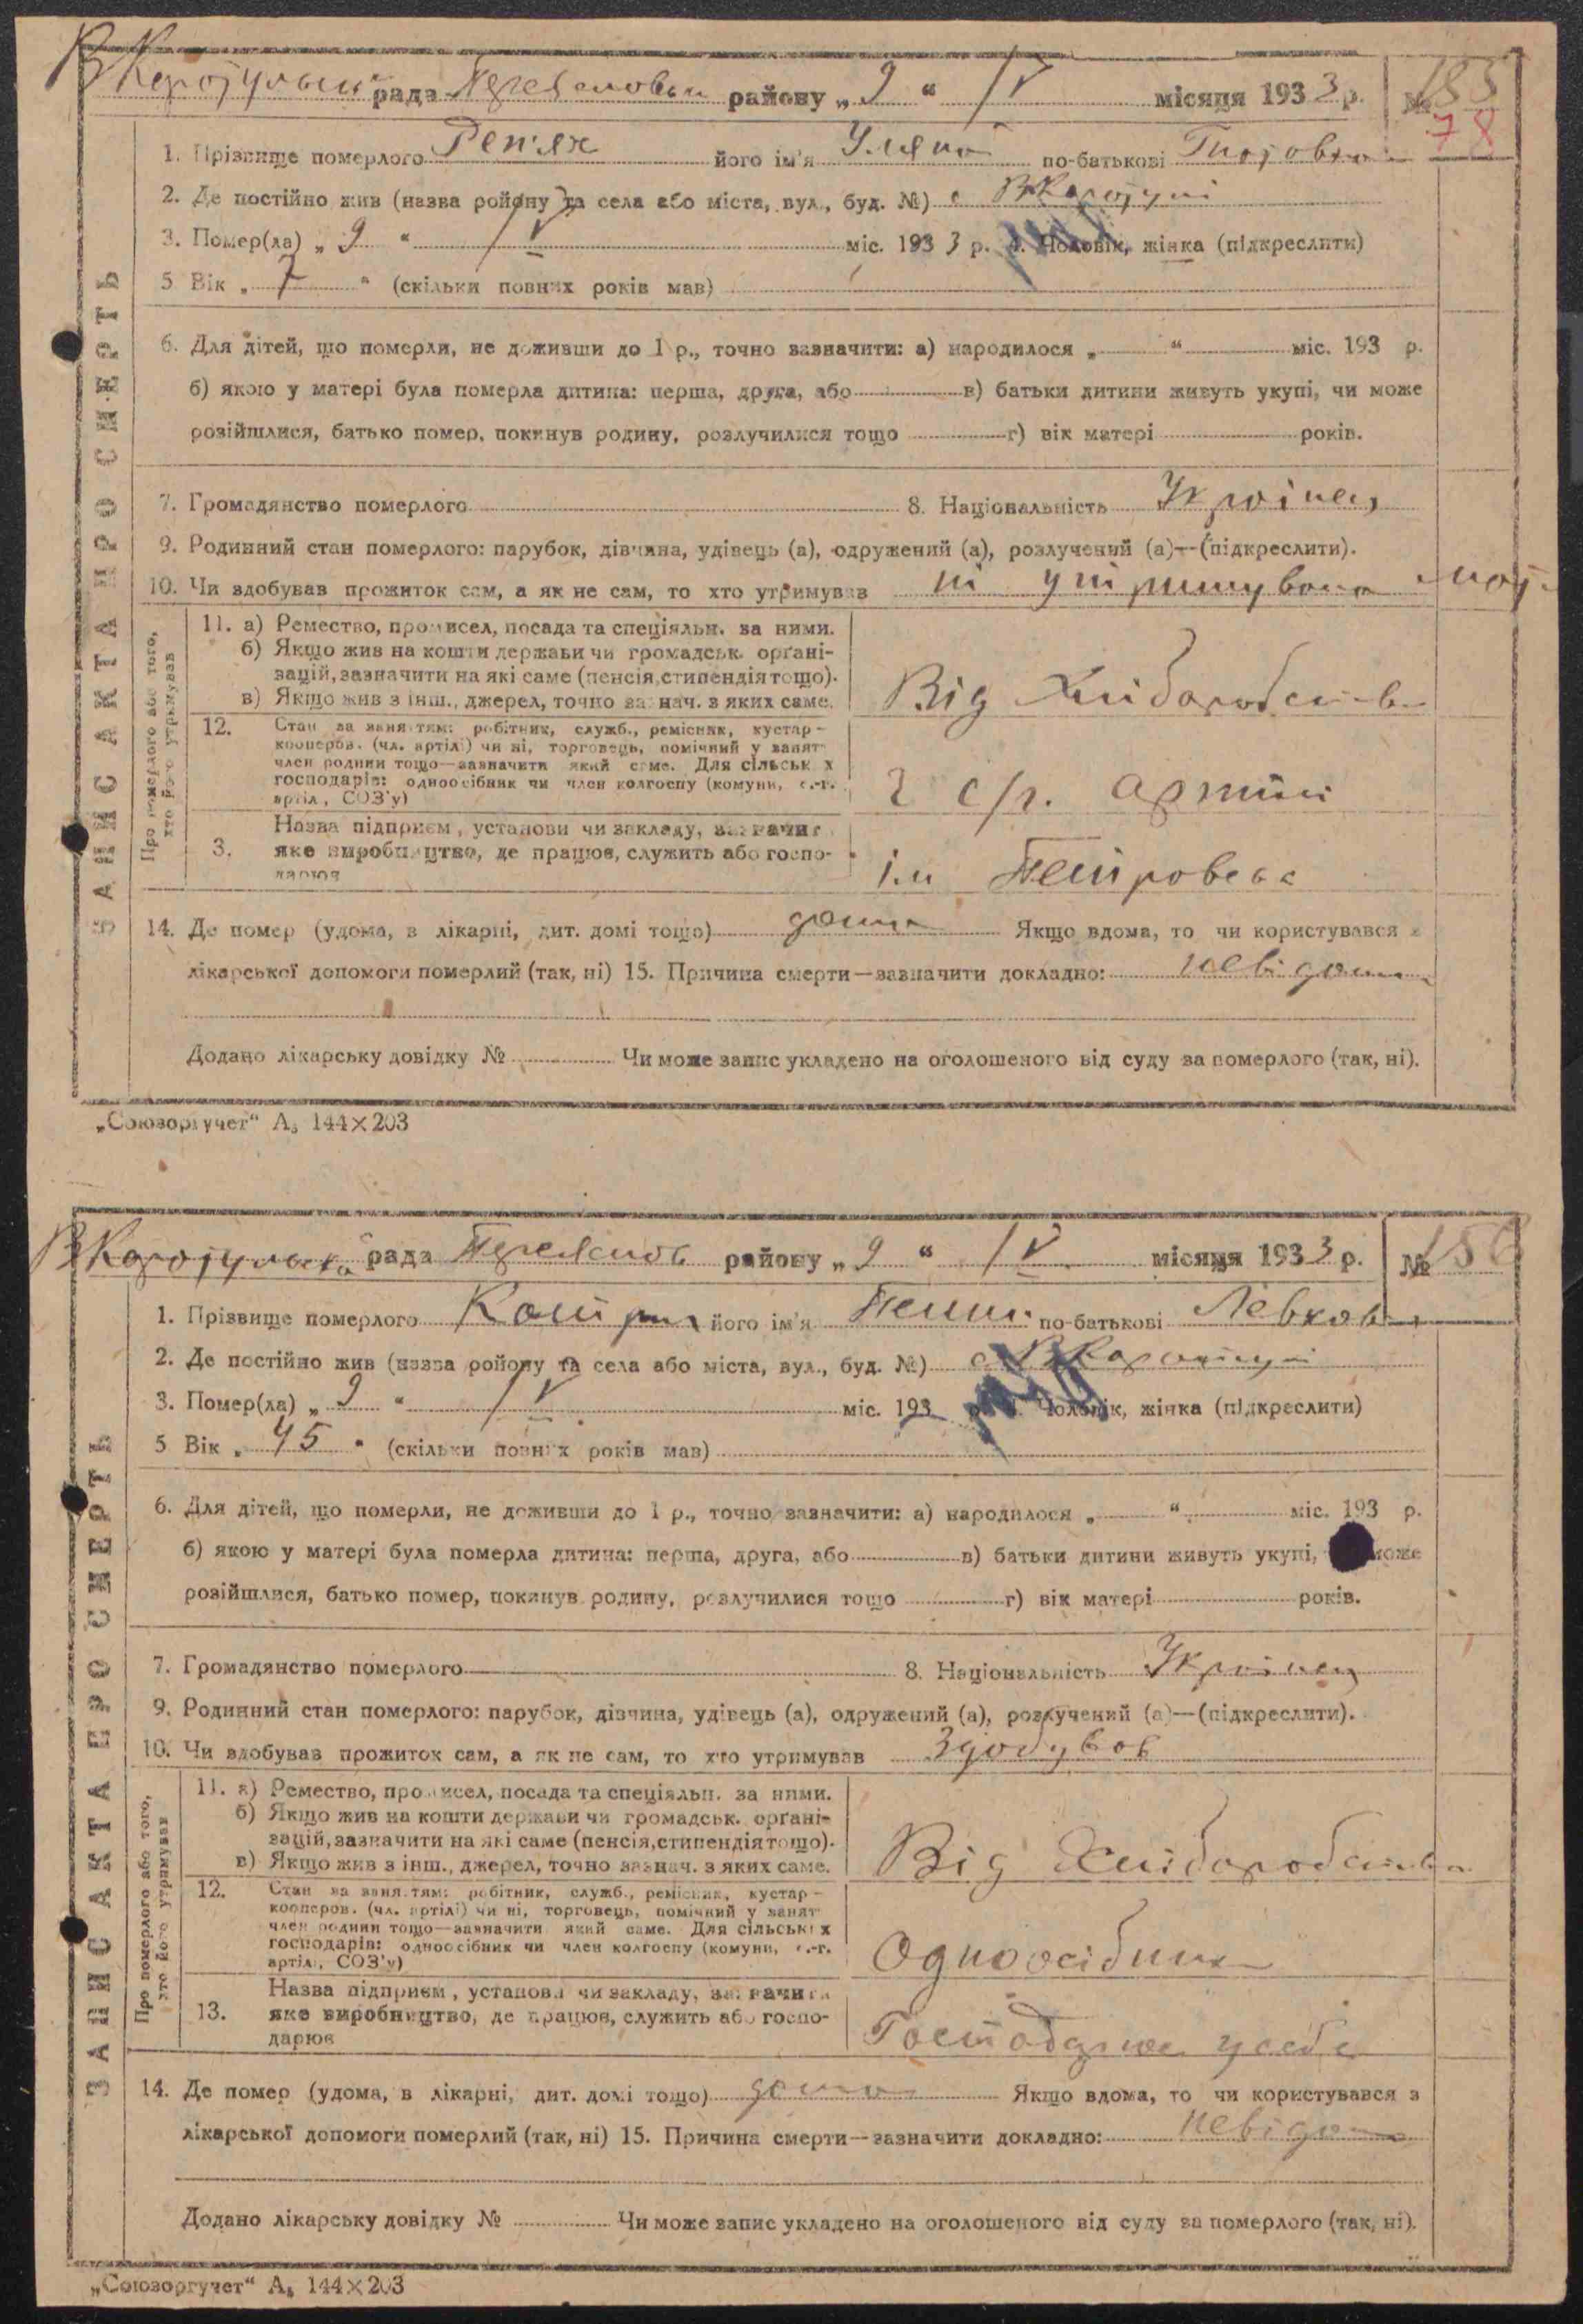 В Каратульська рада Переяславськ району „ 9 “ IV місяця 1933 р. № 155
78
1. Прізвище померлого Реп'ях його ім'я Уляна по-батькові
2. Де постійно жив (назва ройону та села або міста, вул., буд. №) с В Каратулі
3. Помер(ла) „ 9 “ IV міс. 193 3 р. 4. Чоловік, жінка (підкреслити)
5 Вік „ 7 “ (скільки повних років мав)
6. Для дітей, що померли, не доживши до 1 р., точно зазначити: а) народилося „ “ міс. 193 р.
б) якою у матері була померла дитина: перша, друга, або в) батьки дитини живуть укупі, чи може
розійшлися, батько помер, покинув родину, розлучилися тощо г) вік матері років.
7. Громадянство померлого 8. Національність Українец
9. Родинний стан померлого: парубок, дівчина, удівець (а), одружений (а), розлучений (а)—(підкреслити).
10. Чи здобував прожиток сам, а як не сам, то хто утримував ні утримувала
ЗАПИС АКТА ПРО СМЕРТЬ
Про померлого або того, хто його утримував
11. а) Ремество, промисел, посада та спеціяльн. за ними.
б) Якщо жив на кошти держави чи громадськ. організацій, зазначити на які саме (пенсія, стипендія тощо).
в) Якщо жив з інш., джерел, точно зазнач. з яких саме.
Від Хліборобства
12. Стан за заняттям: робітник, служб., ремісник, кустар—
кооперов. (чл. артілі) чи ні, торговець, помічний у занят
член родини тощо—зазначити який саме. Для сільськ х
господарів: одноосібник чи член колгоспу (комуни, с.-г.
артіл, СОЗ'у)
Ч с/г. артілі
Назва підприєм, установи чи закладу, зазначити
3. яке виробництво, де працює, служить або госпо-
дарює
ім Петровськ
14. Де помер (удома, в лікарні, дит. домі тощо) дома Якщо вдома, то чи користувався з
лікарської допомоги померлий (так, ні) 15. Причина смерти—зазначити докладно: невідома
Додано лікарську довідку № Чи може запис укладено на оголошеного від суду за померлого (так, ні).
„Союзоргучет“ А₅ 144×203
В Каратульська рада Переяслав району „ 9 “ IV місяця 193 3 р. № 156
1. Прізвище померлого його ім'я по-батькові Левков
2. Де постійно жив (назва ройону та села або міста, вул., буд. №) с В Каратулі
3. Помер(ла) „ 9 “ IV міс. 193 р. 4. Чоловік, жінка (підкреслити)
5 Вік „ 45 “ (скільки повних років мав)
6. Для дітей, що померли, не доживши до 1 р., точно зазначити: а) народилося „ “ міс. 193 р.
б) якою у матері була померла дитина: перша, друга, або в) батьки дитини живуть укупі, може
розійшлися, батько помер, покинув родину, розлучилися тощо г) вік матері років.
7. Громадянство померлого 8. Національність Українец
9. Родинний стан померлого: парубок, дівчина, удівець (а), одружений (а), розлучений (а)—(підкреслити).
10. Чи здобував прожиток сам, а як не сам, то хто утримував Здобував
ЗАПИС АКТА ПРО СМЕРТЬ
Про померлого або того, хто його утримував
11. а) Ремество, промисел, посада та спеціяльн. за ними.
б) Якщо жив на кошти держави чи громадськ. органі-
зацій, зазначити на які саме (пенсія, стипендія тощо).
в) Якщо жив з інш., джерел, точно зазнач. з яких саме.
Від Хліборобства
12. Стан за заняттям: робітник, служб., ремісник, кустар—
кооперов. (чл. артілі) чи ні, торговець, помічний у занят
член родини тощо—зазначити який саме. Для сільських
господарів: одноосібник чи член колгоспу (комуни, с.-г.
артіл, СОЗ'у)
Одноосібник
Назва підприєм, установи чи закладу, зазначити
13. яке виробництво, де працює, служить або госпо-
дарює
Господарює у себе
14. Де помер (удома, в лікарні, дит. домі тощо) дома Якщо вдома, то чи користувався з
лікарської допомоги померлий (так, ні) 15. Причина смерти—зазначити докладно: невідома
Додано лікарську довідку № Чи може запис укладено на оголошеного від суду за померлого (так, ні).
„Союзоргучет“ А₅ 144×203